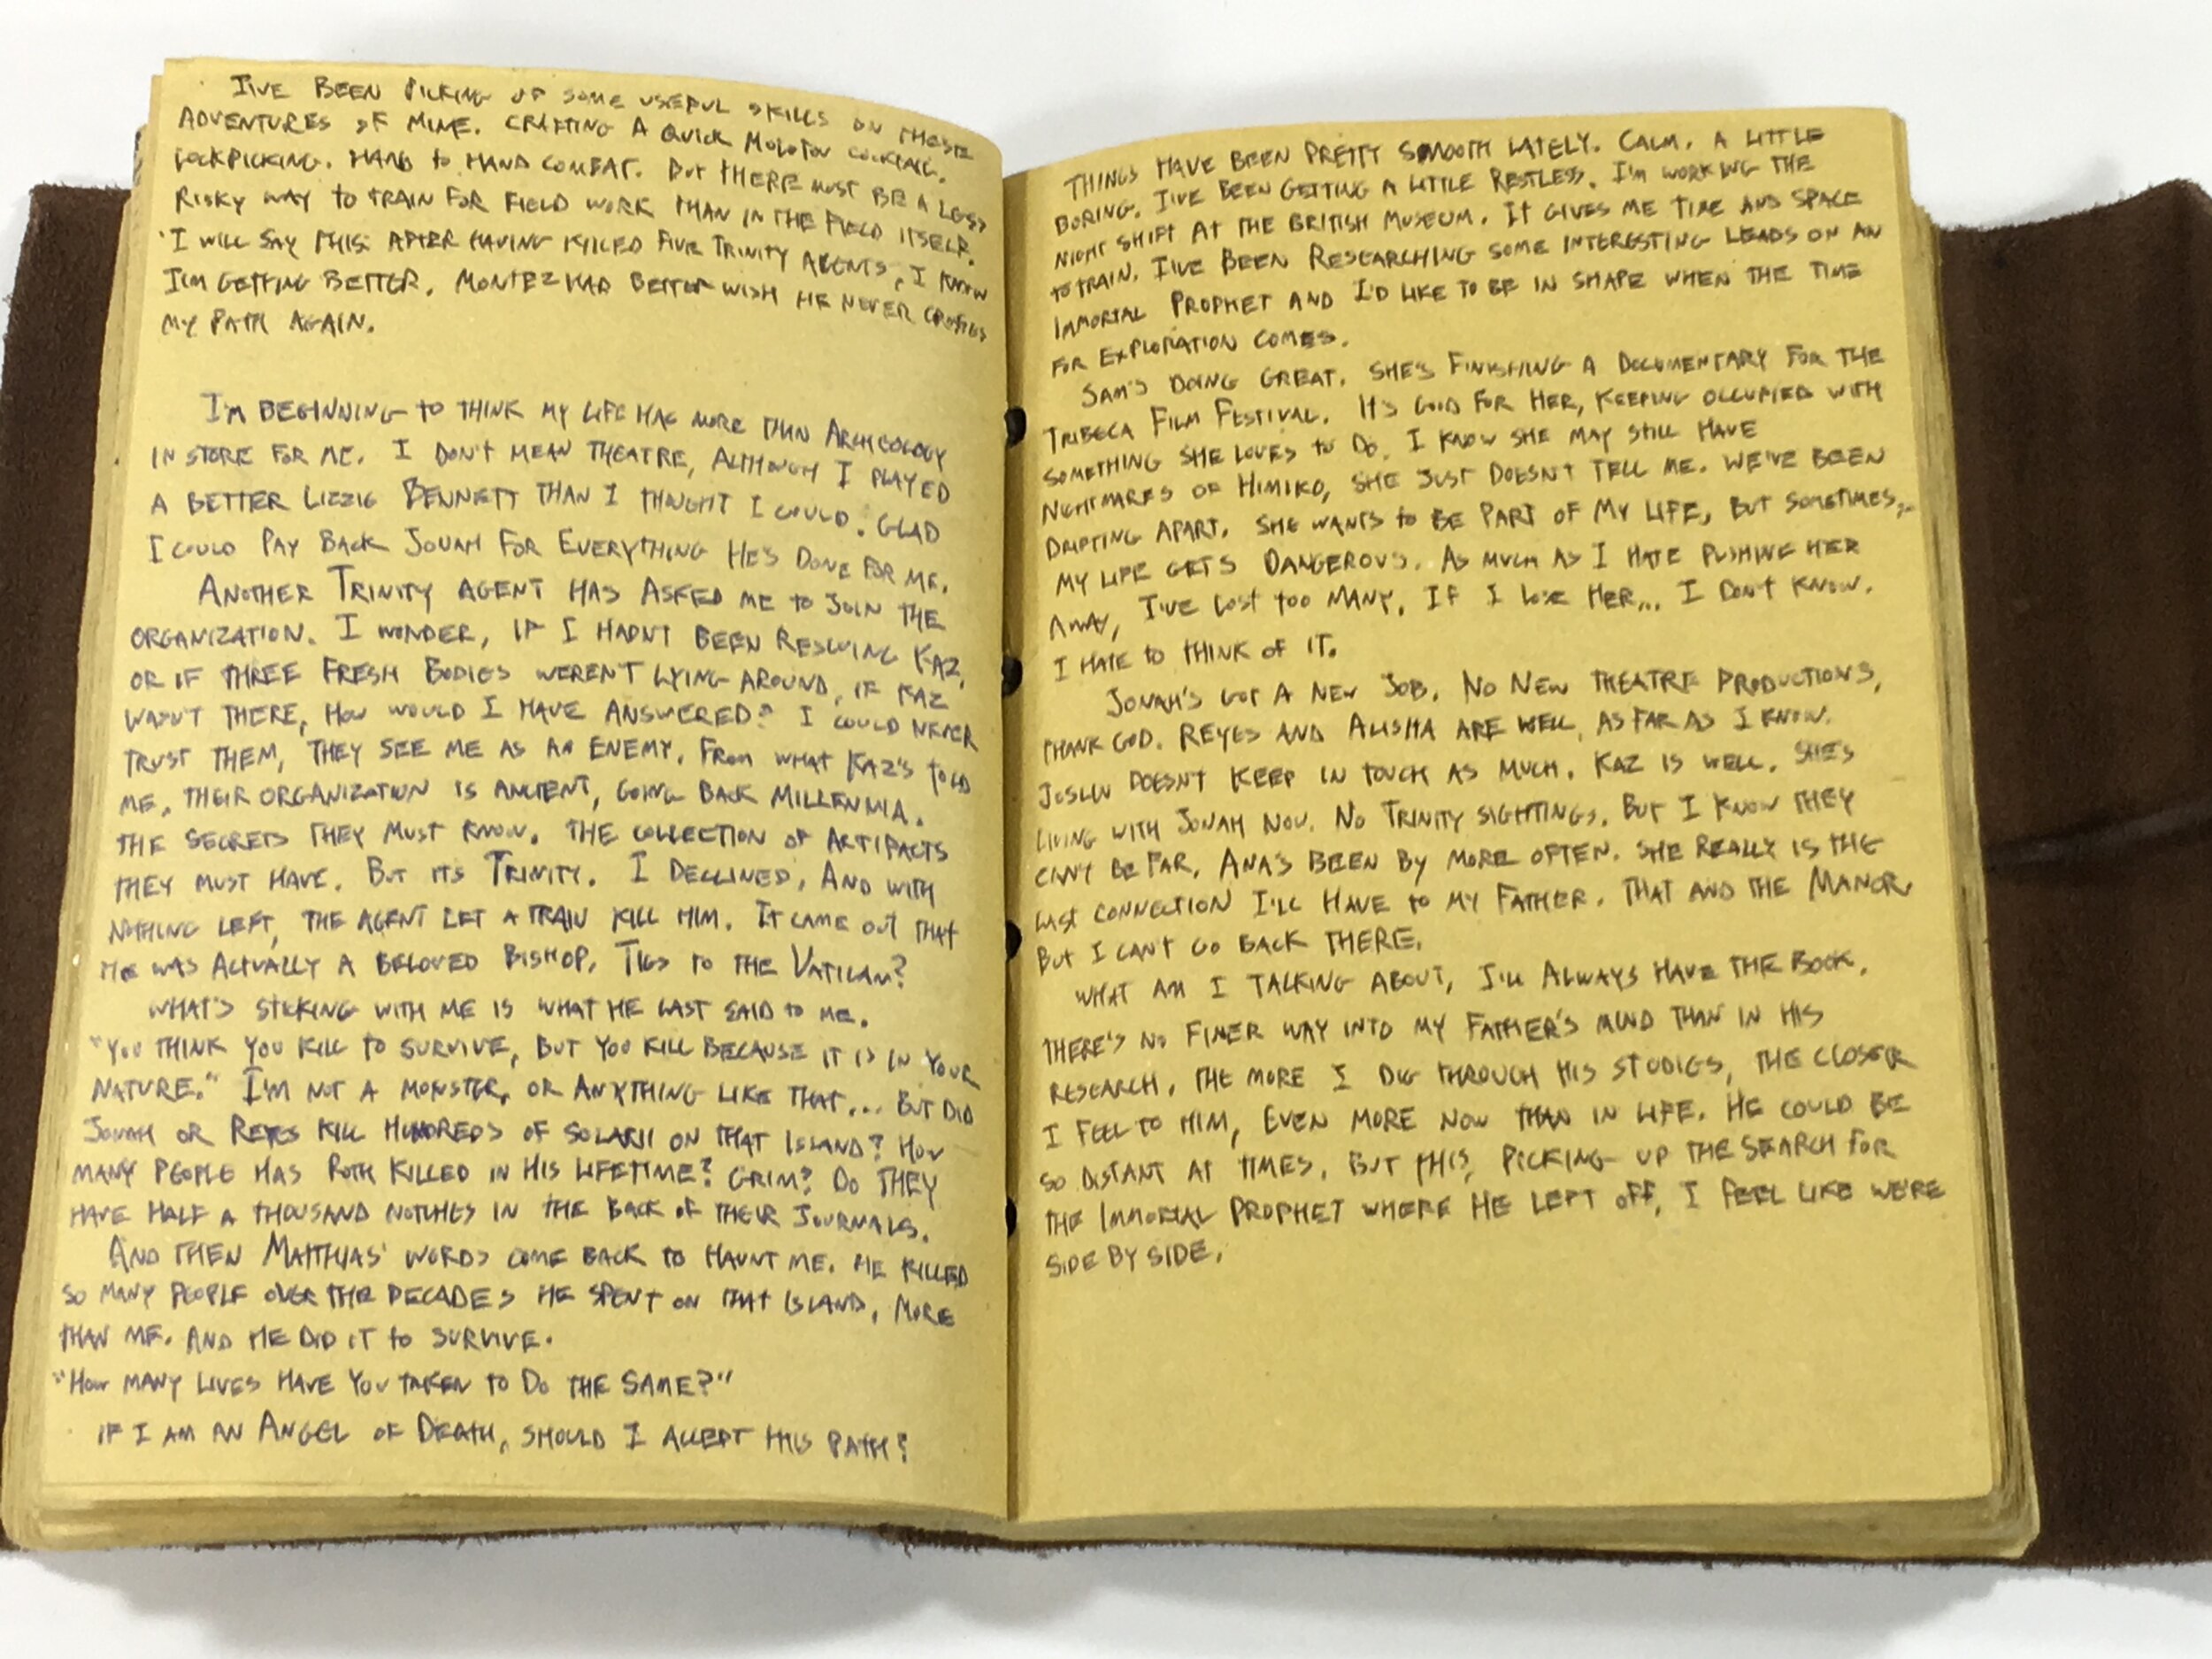 I'VE BEEN PICKING UP SOME USEFUL SKILLS ON THESE
ADVENTURES OF MINE. CRAFTING A QUICK MOLOTOV COCKTAIL.
LOCKPICKING. HAND TO HAND COMBAT. BUT THERE MUST BE A LESS
RISKY WAY TO TRAIN FOR FIELD WORK THAN IN THE FIELD ITSELF.
I WILL SAY THIS: AFTER HAVING KILLED FIVE TRINITY AGENTS, I KNOW
I'M GETTING BETTER. MONTEZ HAD BETTER WISH HE NEVER CROSSES
MY PATH AGAIN.
I'M BEGINNING TO THINK MY LIFE HAS MORE THAN ARCHEOLOGY
IN STORE FOR ME. I DON'T MEAN THEATRE, ALTHOUGH I PLAYED
A BETTER LIZZIE BENNETT THAN I THOUGHT I COULD. GLAD
I COULD PAY BACK JONAH FOR EVERYTHING HE'S DONE FOR ME.
ANOTHER TRINITY AGENT HAS ASKED ME TO JOIN THE
ORGANIZATION. I WONDER, IF I HADN'T BEEN RESCUING KAZ,
OR IF THREE FRESH BODIES WEREN'T LYING AROUND, IF KAZ
WASN'T THERE, HOW WOULD I HAVE ANSWERED? I COULD NEVER
TRUST THEM, THEY SEE ME AS AN ENEMY. FROM WHAT KAZ'S TOLD
ME, THEIR ORGANIZATION IS ANCIENT, GOING BACK MILLENNIA.
THE SECRETS THEY MUST KNOW. THE COLLECTION OF ARTIFACTS
THEY MUST HAVE. BUT ITS TRINITY. I DECLINED, AND WITH
NOTHING LEFT, THE AGENT LET A TRAIN KILL HIM. IT CAME OUT THAT
HE WAS ACTUALLY A BELOVED BISHOP. TIES TO THE VATICAN?
WHAT'S STICKING WITH ME IS WHAT HE LAST SAID TO ME.
"YOU THINK YOU KILL TO SURVIVE, BUT YOU KILL BECAUSE IT IS IN YOUR
NATURE." I'M NOT A MONSTER, OR ANYTHING LIKE THAT... BUT DID
JONAH OR REYES KILL HUNDREDS OF SOLARII ON THAT ISLAND? HOW
MANY PEOPLE HAS ROTH KILLED IN HIS LIFETIME? GRIM? DO THEY
HAVE HALF A THOUSAND NOTCHES IN THE BACK OF THEIR JOURNALS.
AND THEN MATHIAS' WORDS COME BACK TO HAUNT ME. HE KILLED
SO MANY PEOPLE OVER THE DECADES HE SPENT ON THAT ISLAND, MORE
THAN ME. AND HE DID IT TO SURVIVE.
"HOW MANY LIVES HAVE YOU TAKEN TO DO THE SAME?"
IF I AM AN ANGEL OF DEATH, SHOULD I ACCEPT THIS PATH?
THINGS HAVE BEEN PRETTY SMOOTH LATELY. CALM. A LITTLE
BORING. I'VE BEEN GETTING A LITTLE RESTLESS. I'M WORKING THE
NIGHT SHIFT AT THE BRITISH MUSEUM. IT GIVES ME TIME AND SPACE
TO TRAIN. I'VE BEEN RESEARCHING SOME INTERESTING LEADS ON AN
IMMORTAL PROPHET AND I'D LIKE TO BE IN SHAPE WHEN THE TIME
FOR EXPLORATION COMES.
SAM'S DOING GREAT. SHE'S FINISHING A DOCUMENTARY FOR THE
TRIBECA FILM FESTIVAL. IT'S GOOD FOR HER, KEEPING OCCUPIED WITH
SOMETHING SHE LOVES TO DO. I KNOW SHE MAY STILL HAVE
NIGHTMARES OF HIMIKO, SHE JUST DOESN'T TELL ME. WE'VE BEEN
DRIFTING APART. SHE WANTS TO BE PART OF MY LIFE, BUT SOMETIMES,
MY LIFE GETS DANGEROUS. AS MUCH AS I HATE PUSHING HER
AWAY, I'VE LOST TOO MANY. IF I LOSE HER... I DON'T KNOW.
I HATE TO THINK OF IT.
JONAH'S GOT A NEW JOB. NO NEW THEATRE PRODUCTIONS,
THANK GOD. REYES AND ALISHA ARE WELL, AS FAR AS I KNOW.
JOSLIN DOESN'T KEEP IN TOUCH AS MUCH. KAZ IS WELL. SHE'S
LIVING WITH JONAH NOW. NO TRINITY SIGHTINGS. BUT I KNOW THEY
CAN'T BE FAR. ANA'S BEEN BY MORE OFTEN. SHE REALLY IS THE
LAST CONNECTION I'LL HAVE TO MY FATHER. THAT AND THE MANOR
BUT I CAN'T GO BACK THERE.
WHAT AM I TALKING ABOUT, I'LL ALWAYS HAVE THE BOOK.
THERE'S NO FINER WAY INTO MY FATHER'S MIND THAN IN HIS
RESEARCH. THE MORE I DIG THROUGH HIS STUDIES, THE CLOSER
I FEEL TO HIM, EVEN MORE NOW THAN IN LIFE. HE COULD BE
SO DISTANT AT TIMES. BUT THIS, PICKING UP THE SEARCH FOR
THE IMMORTAL PROPHET WHERE HE LEFT OFF, I FEEL LIKE WE'RE
SIDE BY SIDE.